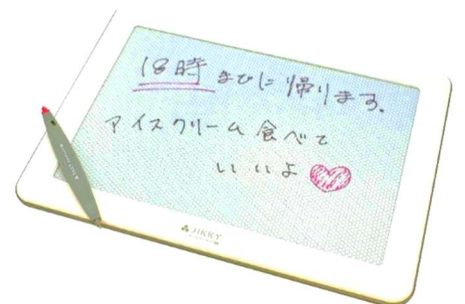 18時までに帰ります。
アイスクリーム食べて
いいよ
JIKKY